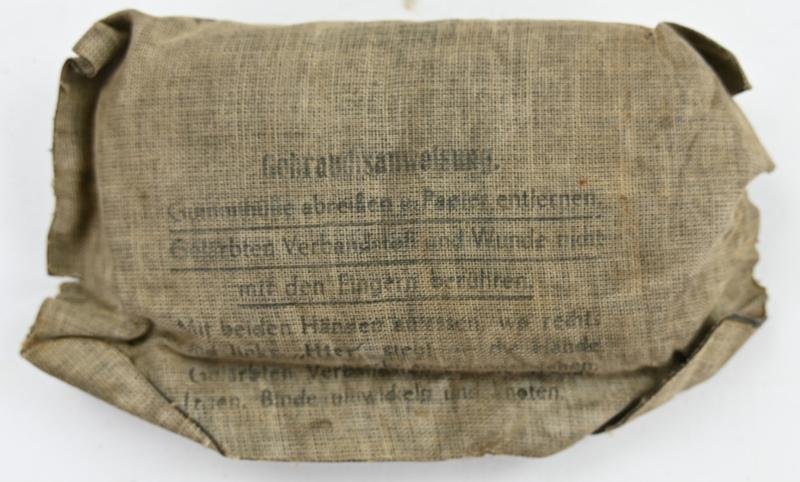 Gebrauchsanweisung.
Gummihülle abreißen u. Papier entfernen.
Gefärbten Verbandstoff und Wunde nicht
mit den Fingern berühren.
Mit beiden Händen anfassen, wo rechts
und links „Hier" steht die Hände
Gefärbten
legen, Binde umwickeln und knoten.